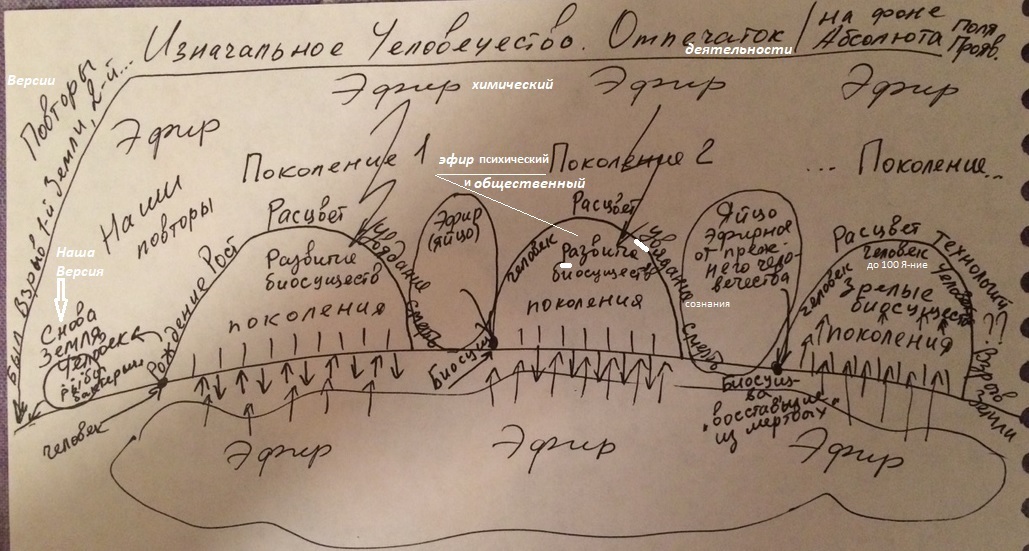 Изначальное Человечество. Отпечаток
деятельности
/ на фоне
Абсолюта
Поля
Прояв.
Версии
Повторы
1-й Земли, 2-й...
Был Взрыв
Эфир
Эфир химический
Эфир
Эфир
Наши
повторы
Поколение 1
эфир психический
и общественный
Поколение 2
... Поколение...
Наша
Версия
Снова
Земля
Человека
рыбы
человек
Рождение
Рост
Расцвет
Увядание
смерть
Развитие
биосуществ
поколения
Эфир
(яйцо)
Биосущ
человек
Расцвет
Увядание
смерть
Развитие
биосуществ
поколения
сознания
Яйцо
Эфирное
от преж-
него чело-
вечества
Биосущ-
ва
"восставшие
из мертвых"
человек
Расцвет
человек
до 100 Я-ние
Зрелые
биосущества
поколения
Технологий
??
Взрыв
Земли
Эфир
Эфир
Эфир